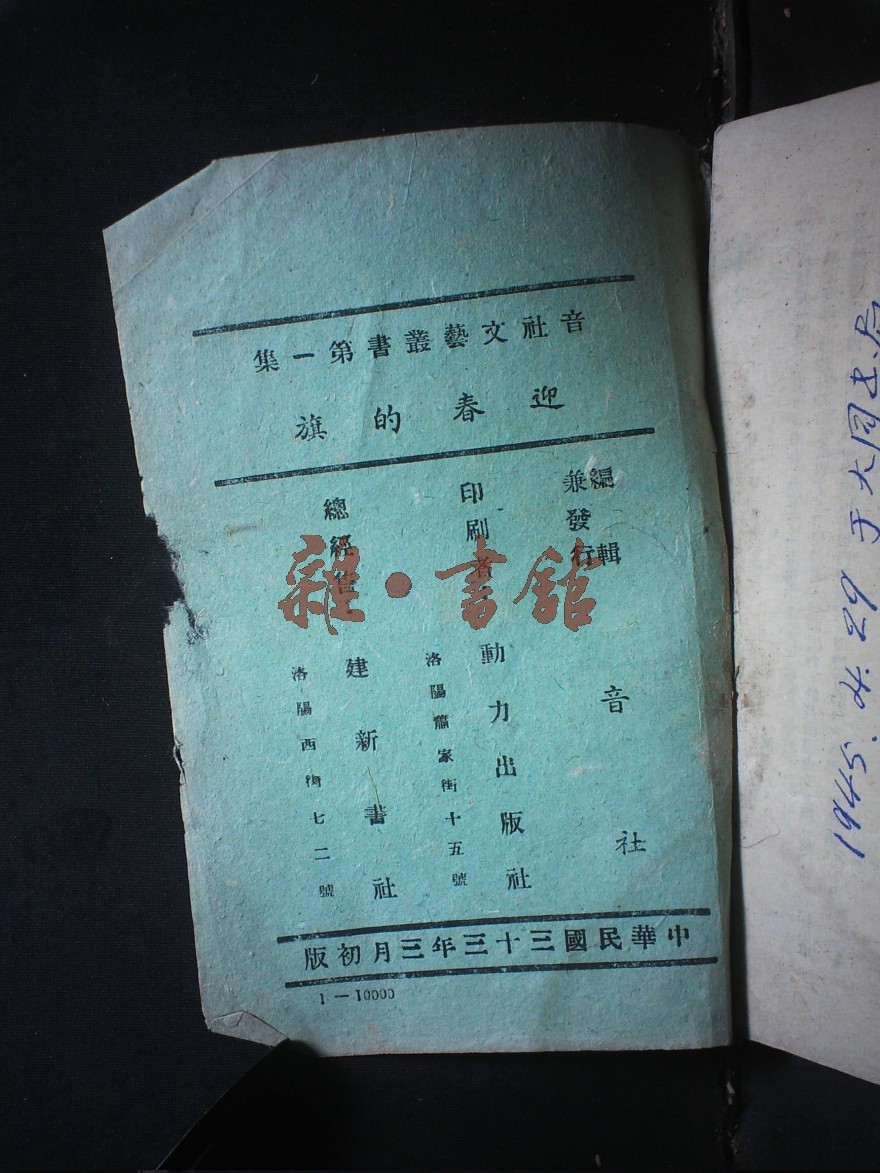 音社文藝叢書第一集
迎春的旗
編輯
兼發行
音社
印刷者
動力出版社
洛陽蕭家街十五號
總經售
建新書社
洛陽西街七二號
中華民國三十三年三月初版
1—10000
雜·書館
1945.4.29于大同书店